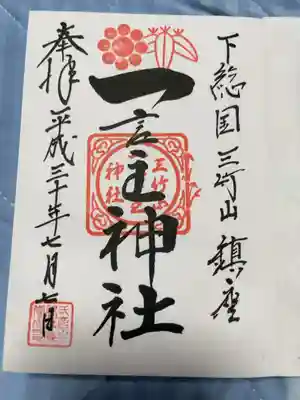 下総国 三竹山 鎮座
一言主神社
奉拝 平成三十年七月七日